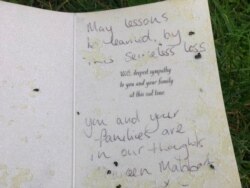 May lessons
be learned by
this senseless loss
With deepest sympathy
to you and your family
at this sad time
you and your
families are
in our thoughts